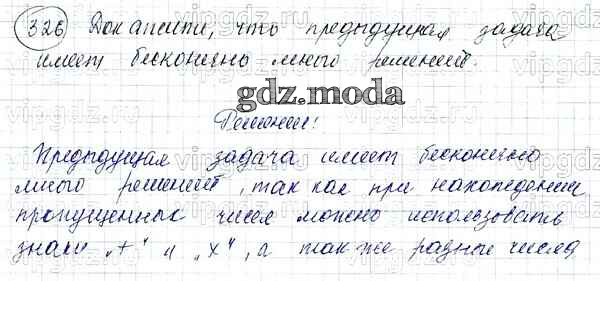 326 Докажите, что предыдущая задача
имеет бесконечно много решений.
gdz.moda
Решение:
Предыдущая задача имеет бесконечно
много решений, так как при нахождении
пропущенных чисел можно использовать
знаки „+“ и „х“, а также разные числа